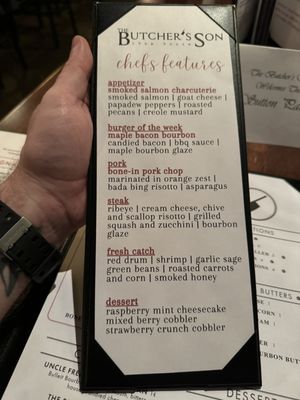 THE
BUTCHER'S SON
chefs features
appetizer
smoked salmon charcuterie
smoked salmon | goat cheese |
papadew peppers | roasted
pecans | creole mustard
burger of the week
maple bacon burger
candied bacon | bbq sauce |
maple bourbon glaze
pork
bone-in pork chop
marinated in orange zest |
bada bing risotto | asparagus
steak
ribeye | cream cheese, chive
and scallop risotto | grilled
squash and zucchini | bourbon
glaze
fresh catch
red drum | shrimp | garlic sage
green beans | roasted carrots
and corn | smoked honey
dessert
raspberry mint cheesecake
mixed berry cobbler
strawberry crunch cobbler
The Butcher's
Welcome
BUTTERS
UNCLE FRE
Bulleit Bourbon
DESSERT